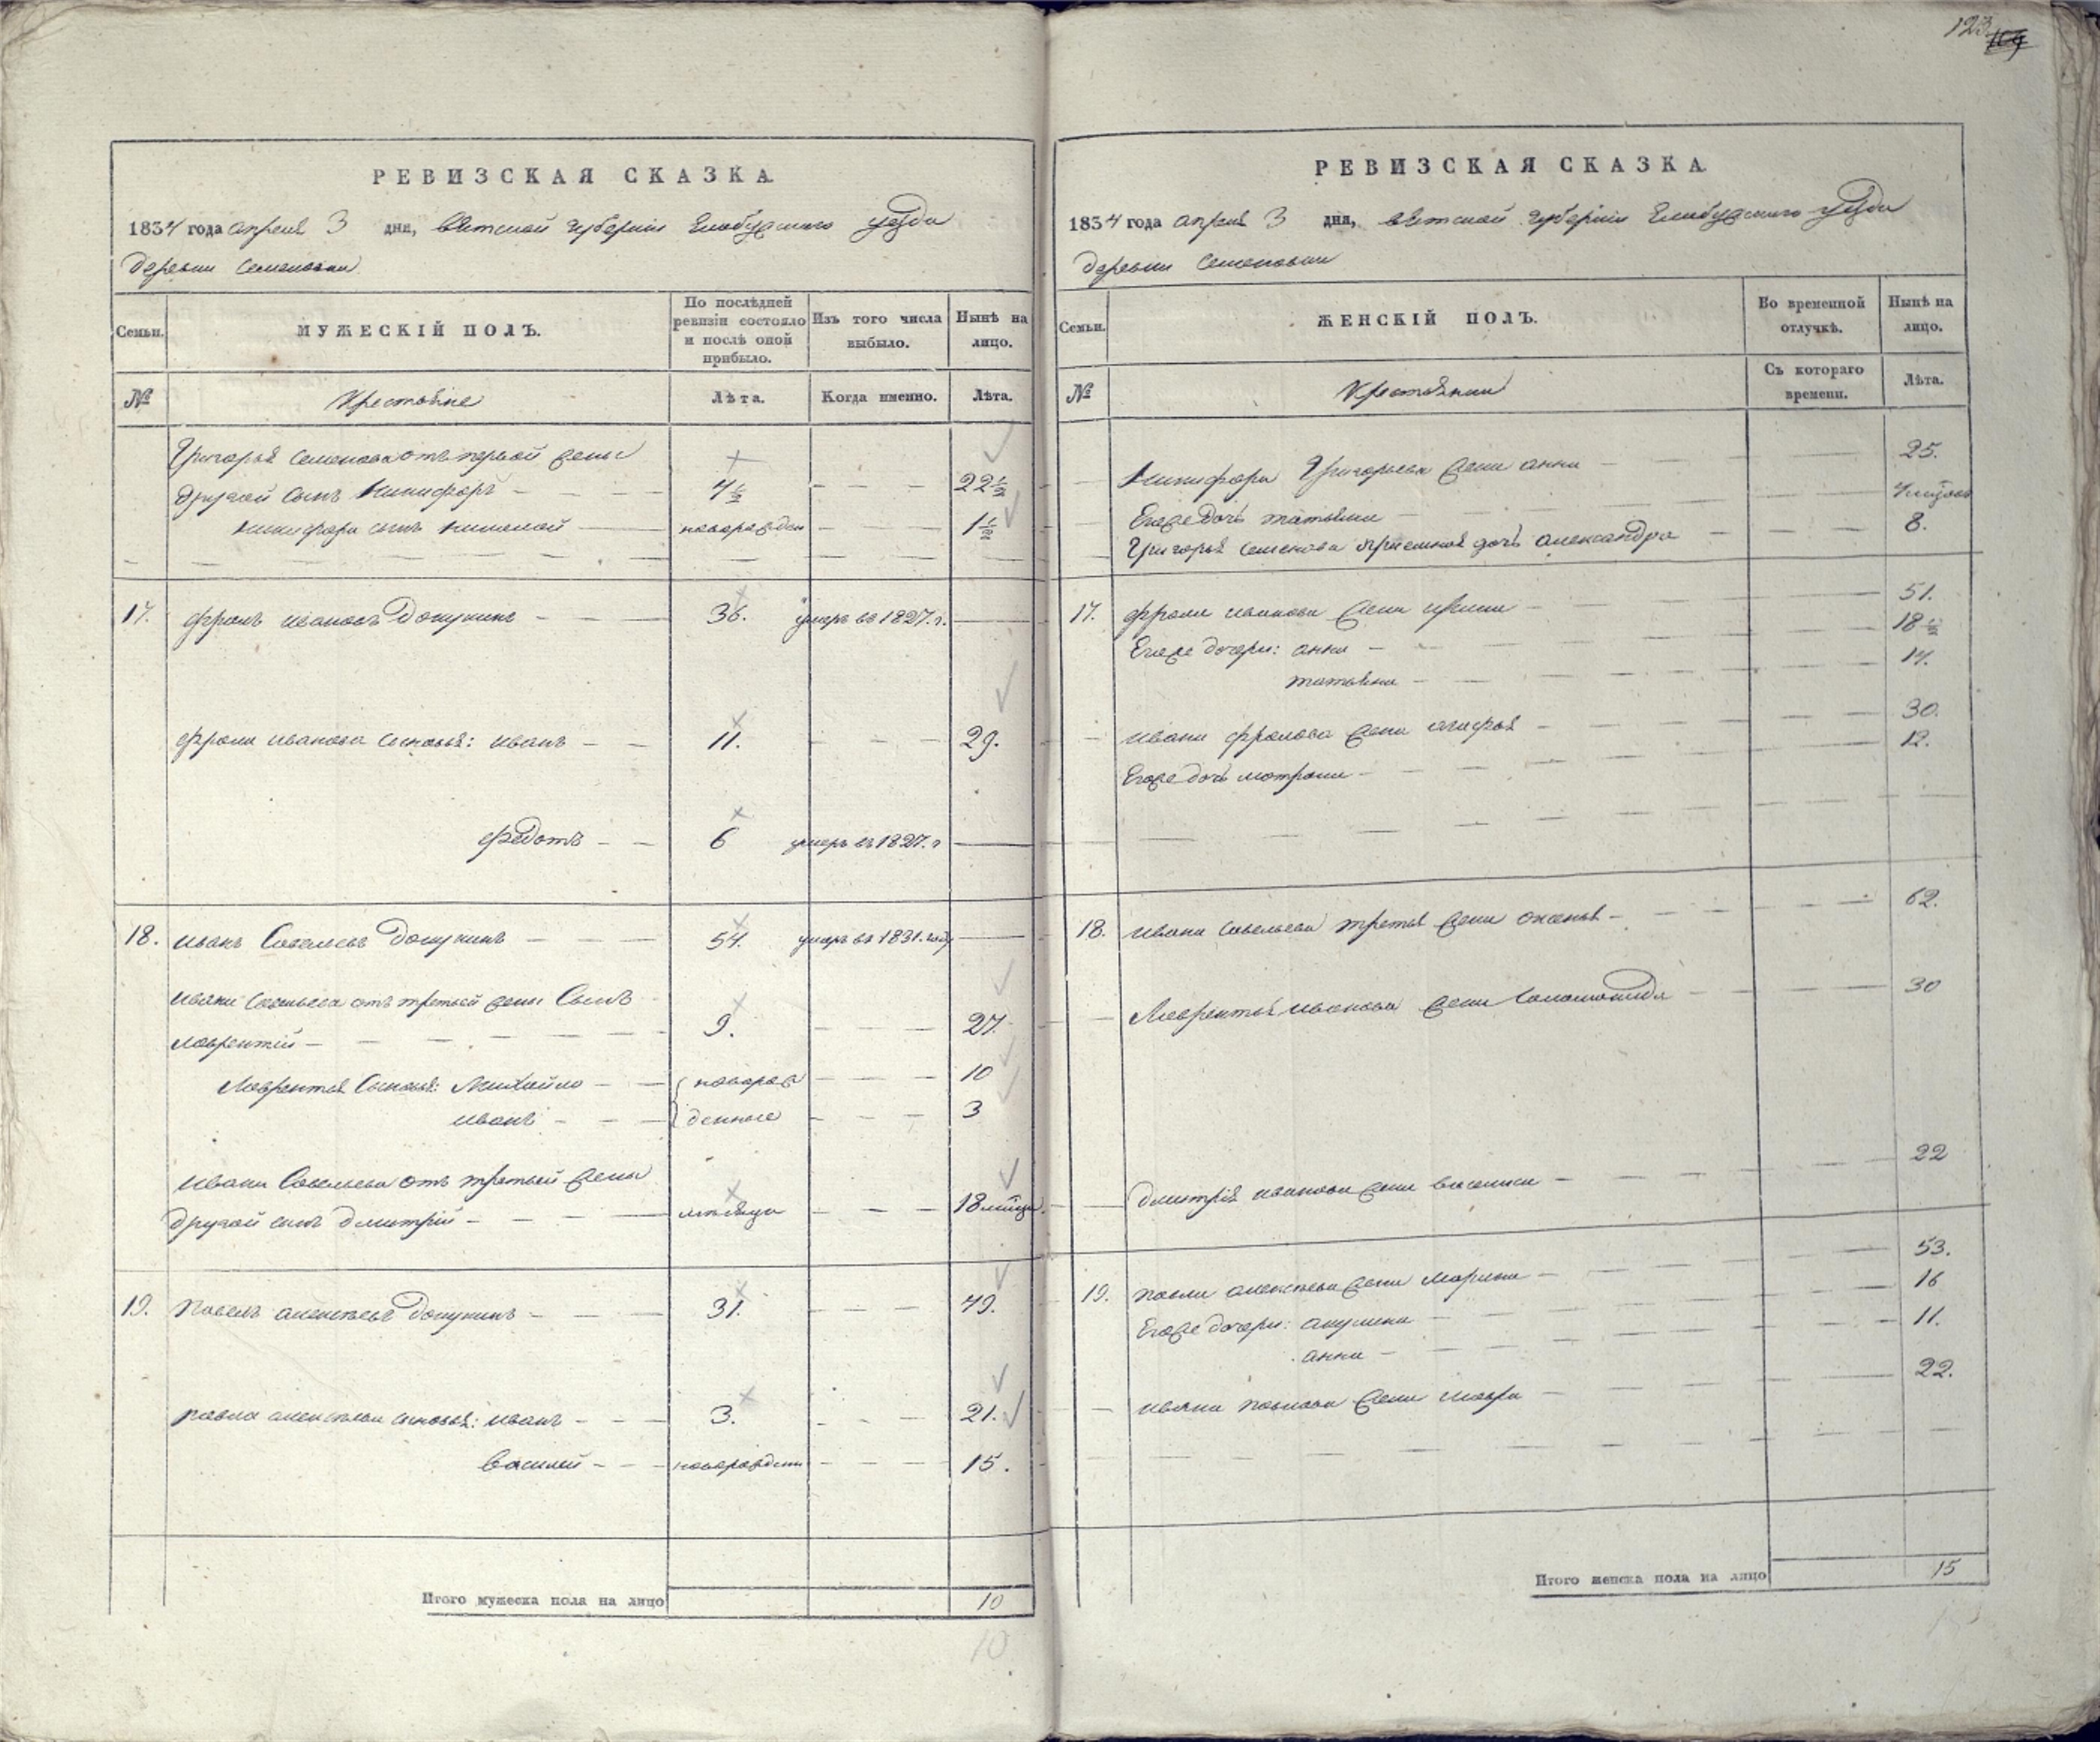 123 109
РЕВИЗСКАЯ СКАЗКА.
1834 года апреля 3 дня, вятской губернiи Елабужского уезда
деревни Семеновки
Семьи.
МУЖЕСКIЙ ПОЛЪ.
По послѣдней ревизiи состояло и послѣ оной прибыло.
Изъ того числа выбыло.
Нынѣ на лицо.
№
Крестьяне
Лѣта.
Когда именно.
Лѣта.
Григорья Семенова отъ первой жены
другой сынъ Никифоръ - 4½ - 22½
Никифора сынъ Николай новорожден - 1½
17. фролъ ивановъ Докукинъ - 36. умеръ въ 1827. г.
фрола иванова сыновья: иванъ - 11. - 29.
федотъ - 6 умеръ въ 1827. г
18. иванъ Савельевъ Докукинъ - 54. умеръ въ 1831. году
ивана Савельева отъ третьей жены Сынъ
лаврентiй - 9. - 27.
Лаврентья Сыновья: Михайло - новорож - 10
иванъ - денные - 3
ивана Савельева отъ третьей жены
другой сынъ дмитрiй - 18
19. Павелъ алексѣевъ Докукинъ - 31. - 49.
павла алексѣева сыновья: иванъ - 3. - 21.
василей - новорожден - 15.
Итого мужеска пола на лицо 10
10
РЕВИЗСКАЯ СКАЗКА.
1834 года апреля 3 дня, вятской губернiи Елабужского уезда
деревни Семеновки
Семьи.
ЖЕНСКIЙ ПОЛЪ.
Во временной отлучкѣ.
Нынѣ на лицо.
№
Крестьянки
Съ котораго времени.
Лѣта.
Никифора Григорьева жена анна - 25.
Егоже дочь татьяна -
Григорья Семенова прiемная дочь александра - 8.
17. фрола иванова жена - 51.
Егоже дочери: анна - 18½
татьяна - 14.
ивана фролова жена агафья - 30.
Егоже дочь матрона - 12.
18. ивана савельева третья жена - 62.
Лаврентья иванова жена Соломонида - 30
дмитрiя иванова жена василиса - 22
19. павла алексѣева жена Марина - 53.
Егоже дочери: акулина - 16
анна - 11.
ивана павлова жена мавра - 22.
Итого женска пола на лицо 15